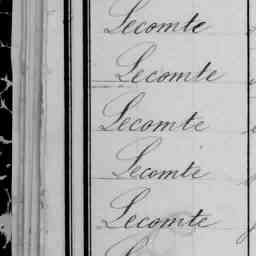 Lecomte
Lecomte
Lecomte
Lecomte
Lecomte